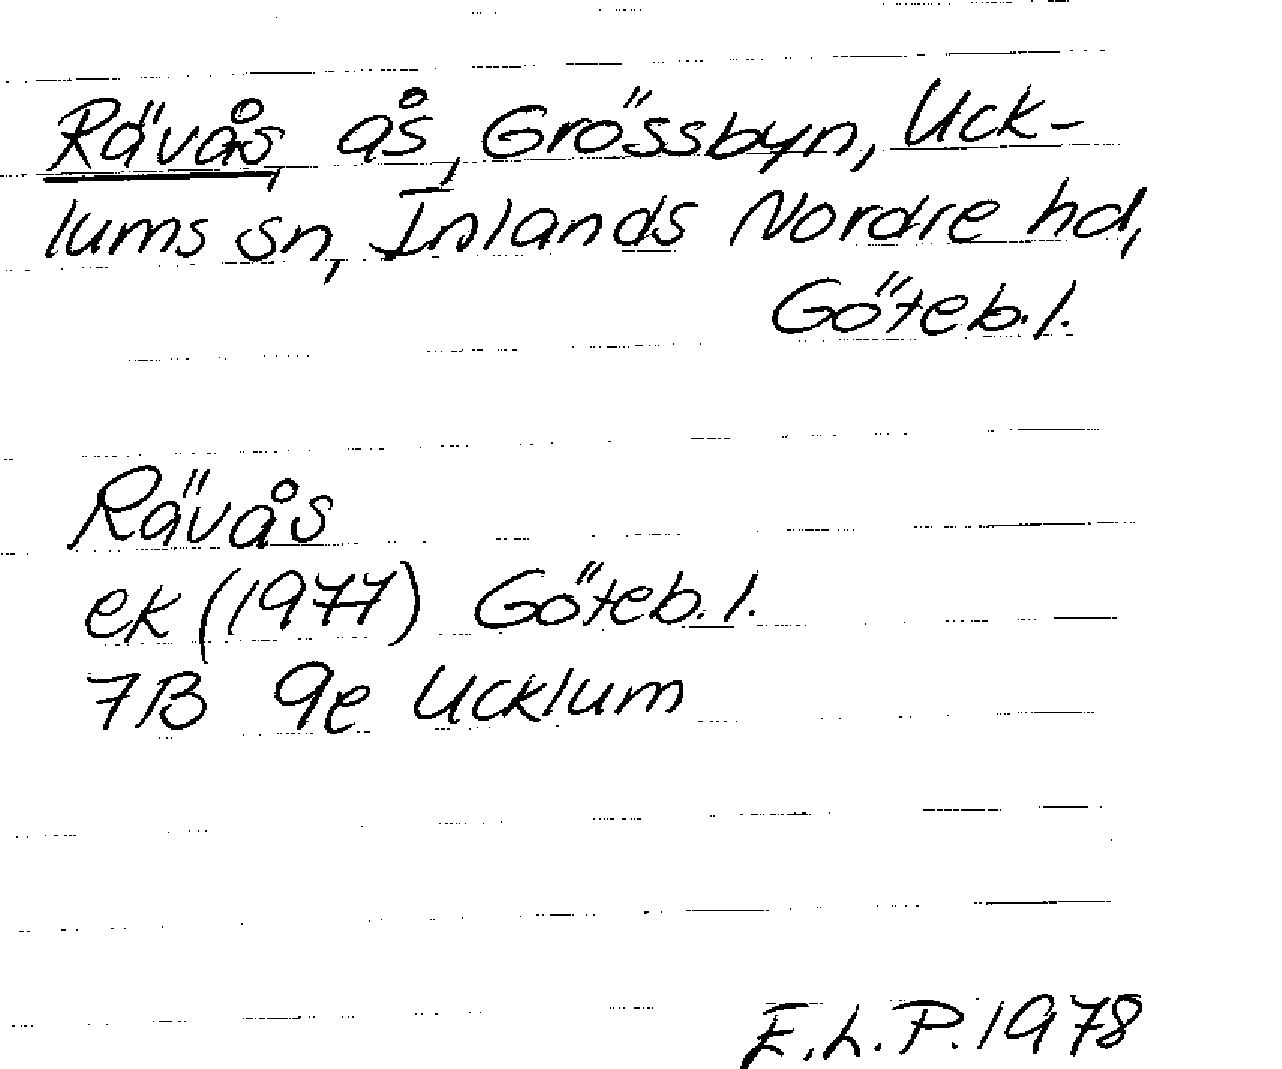 Rävås, ås, Grössbyn, Uck-
lums sn, Inlands Nordre hd,
Göteb. l.
Rävås
ek (1977) Göteb. l.
7B 9e Ucklum
E.L.P. 1978